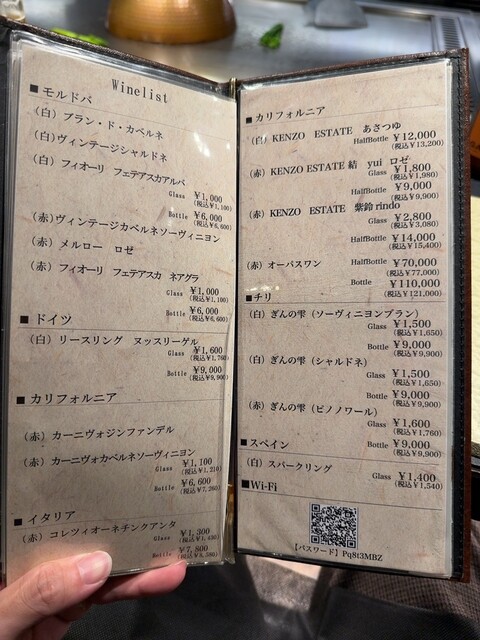 Winelist
■モルドバ
（白）ブラン・ド・カベルネ
（白）ヴィンテージシャルドネ
（白）フィオーリ　フェテアスカアルバ
Glass ¥1,000
（税込¥1,100）
Bottle ¥6,000
（税込¥6,600）
（赤）ヴィンテージカベルネソーヴィニヨン
（赤）メルロー　ロゼ
（赤）フィオーリ　フェテアスカ　ネアグラ
Glass ¥1,000
（税込¥1,100）
Bottle ¥6,000
（税込¥6,600）
■ドイツ
（白）リースリング　ヌッスリーゲル
Glass ¥1,600
（税込¥1,760）
Bottle ¥9,000
（税込¥9,900）
■カリフォルニア
（赤）カーニヴォジンファンデル
（赤）カーニヴォカベルネソーヴィニヨン
Glass ¥1,100
（税込¥1,210）
Bottle ¥6,600
（税込¥7,260）
■イタリア
（赤）コレツィオーネチンクアンタ
Glass ¥1,300
（税込¥1,430）
Bottle ¥7,800
（税込¥8,580）
■カリフォルニア
（白）KENZO　ESTATE　あさつゆ
HalfBottle ¥12,000
（税込¥13,200）
（赤）KENZO ESTATE 結　yui　ロゼ
Glass ¥1,800
（税込¥1,980）
HalfBottle ¥9,000
（税込¥9,900）
（赤）KENZO　ESTATE　紫鈴 rindo
Glass ¥2,800
（税込¥3,080）
HalfBottle ¥14,000
（税込¥15,400）
（赤）オーパスワン　HalfBottle ¥70,000
（税込¥77,000）
Bottle ¥110,000
（税込¥121,000）
■チリ
（白）ぎんの雫（ソーヴィニヨンブラン）
Glass ¥1,500
（税込¥1,650）
Bottle ¥9,000
（税込¥9,900）
（白）ぎんの雫（シャルドネ）
Glass ¥1,500
（税込¥1,650）
Bottle ¥9,000
（税込¥9,900）
（赤）ぎんの雫（ピノノワール）
Glass ¥1,600
（税込¥1,760）
Bottle ¥9,000
（税込¥9,900）
■スペイン
（白）スパークリング
Glass ¥1,400
（税込¥1,540）
■Wi-Fi
【パスワード】Pq8t3MBZ